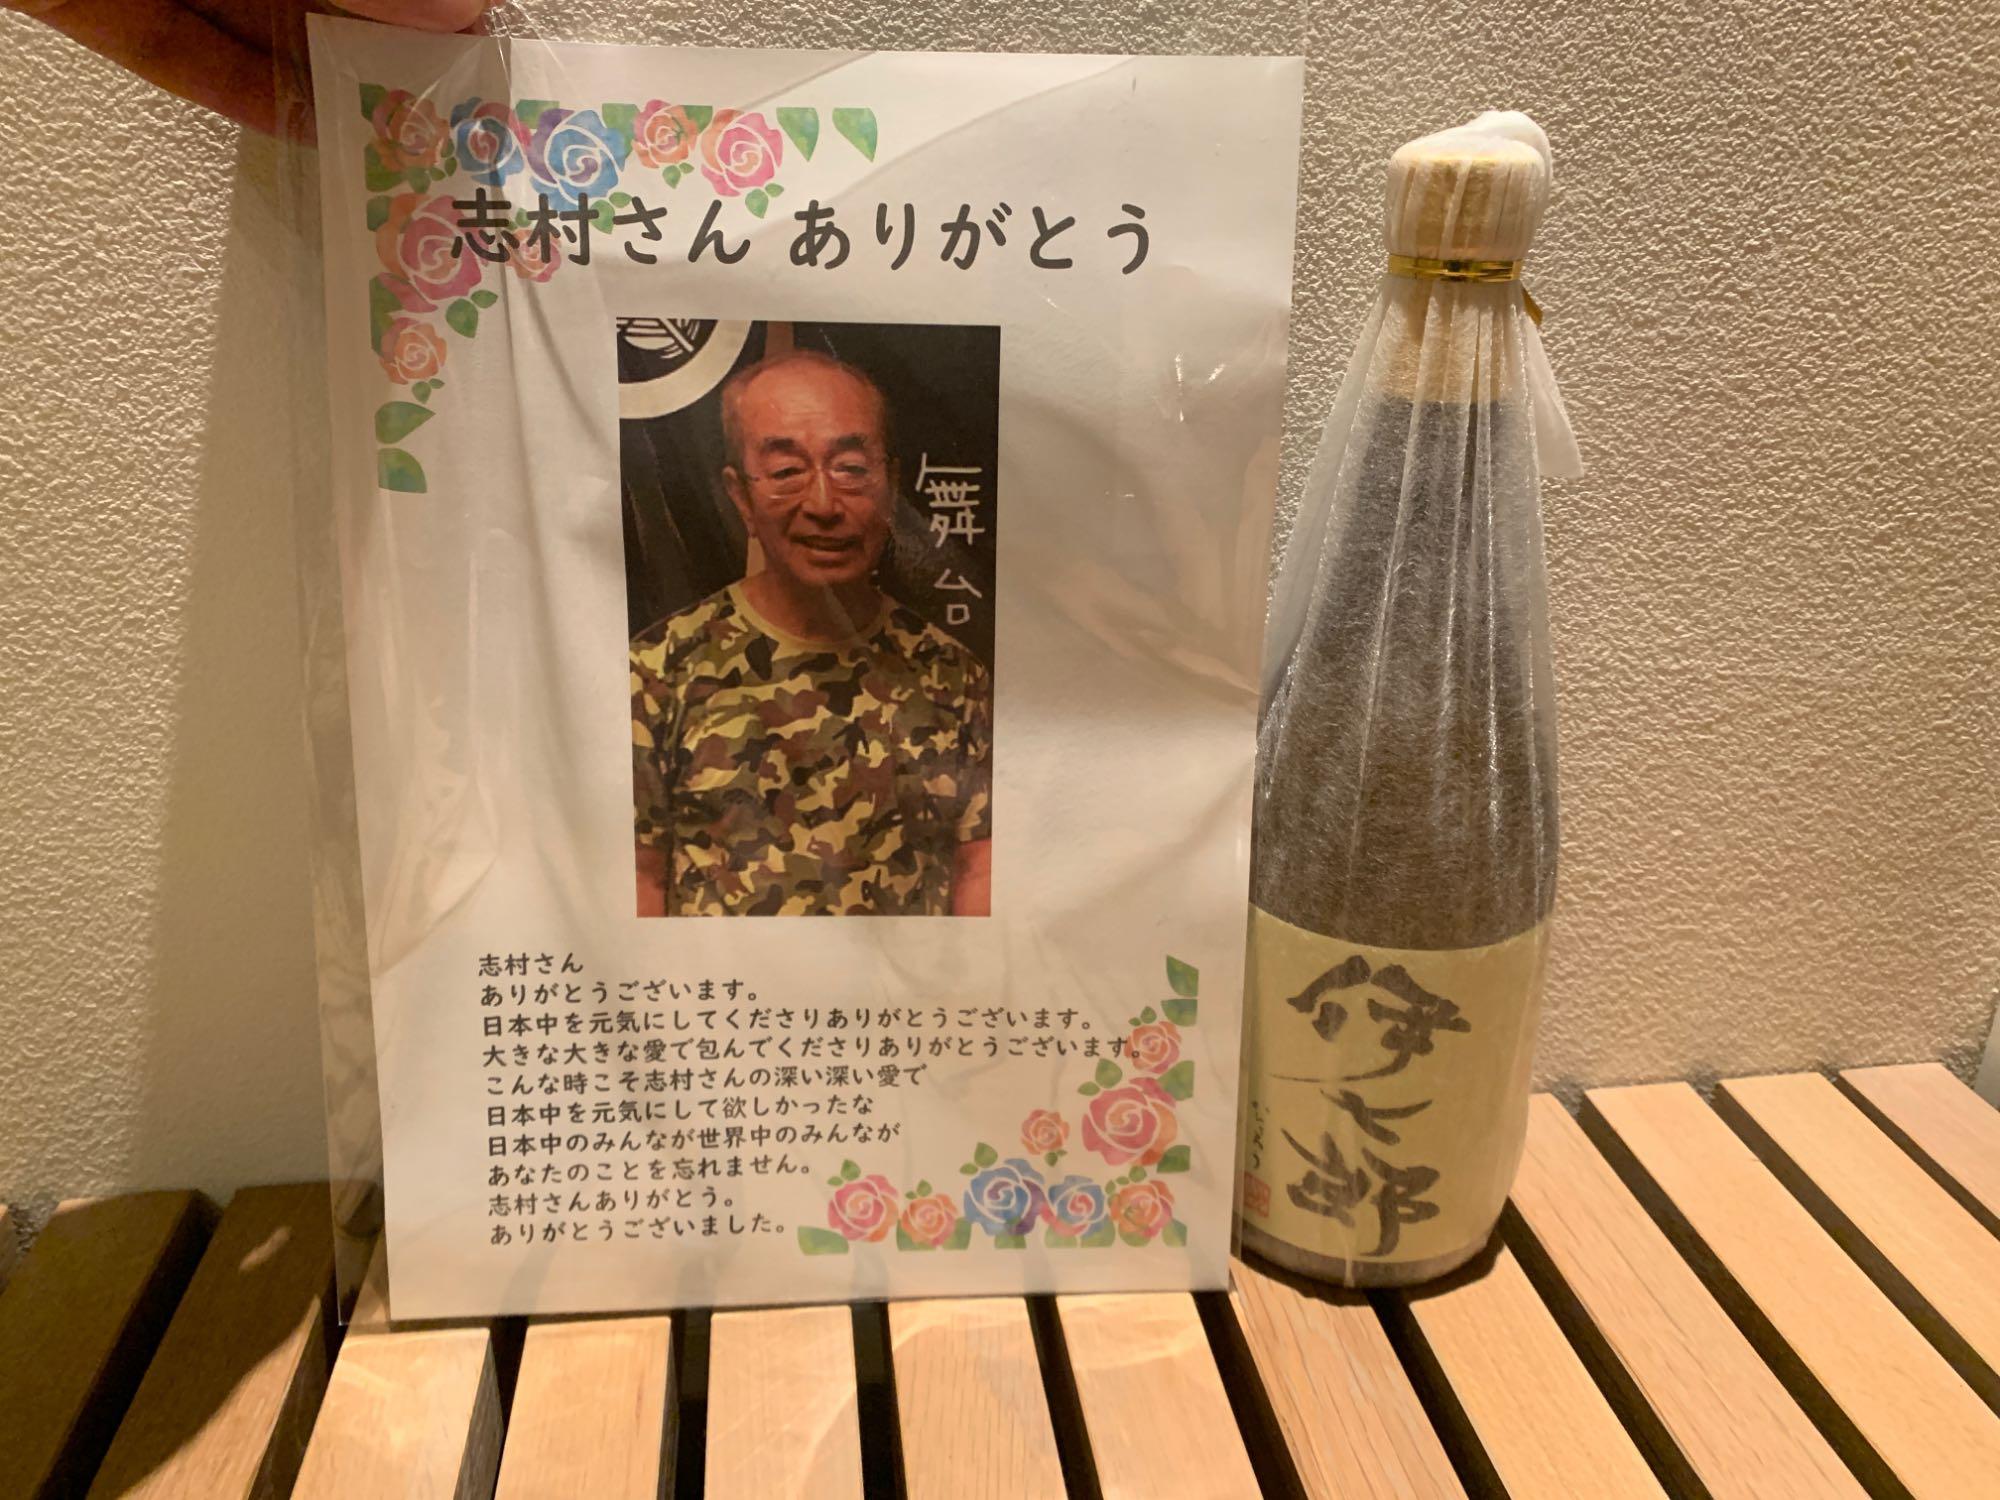 志村さん ありがとう
舞台
志村さん
ありがとうございます。
日本中を元気にしてくださりありがとうございます。
大きな大きな愛で包んでくださりありがとうございます。
こんな時こそ志村さんの深い深い愛で
日本中を元気にして欲しかったな
日本中のみんなが世界中のみんなが
あなたのことを忘れません。
志村さんありがとう。
ありがとうございました。
伊七郎